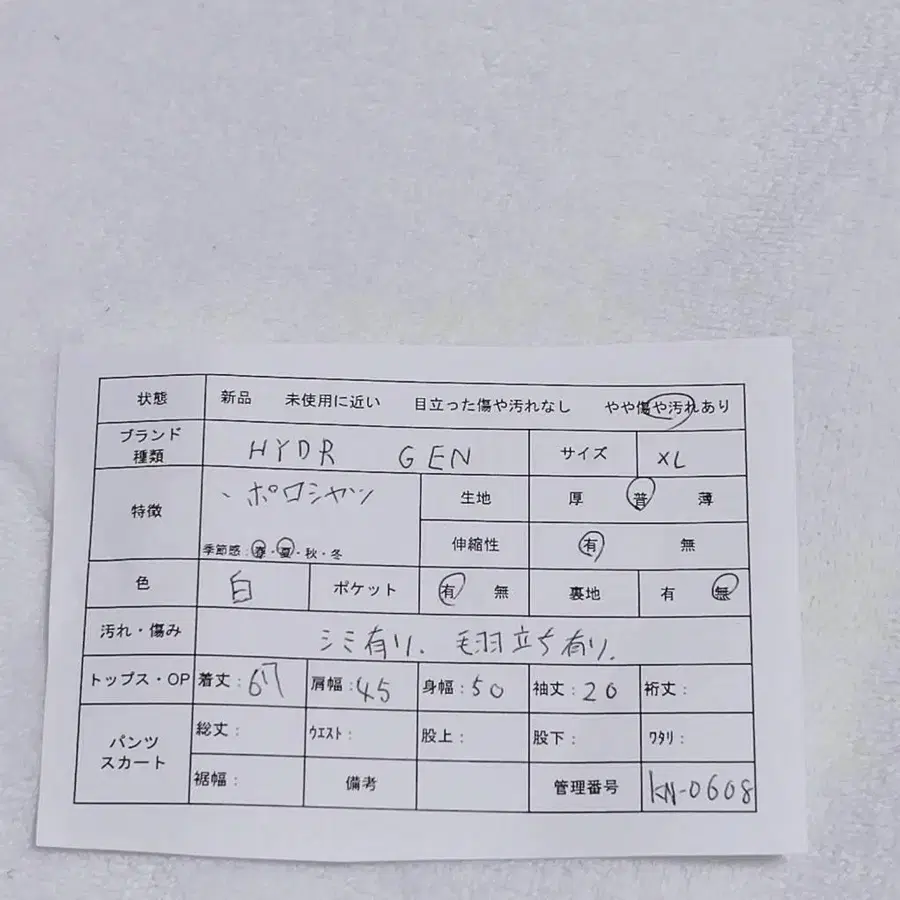 状態 新品 未使用に近い 目立った傷や汚れなし やや傷や汚れあり
ブランド
種類 HYDR GEN サイズ XL
特徴 ・ポロシャツ 生地 厚 普 薄
季節感:春・夏・秋・冬 伸縮性 有 無
色 白 ポケット 有 無 裏地 有 無
汚れ・傷み シミ有り、毛羽立ち有り、
トップス・OP 着丈:67 肩幅:45 身幅:50 袖丈:20 裄丈:
パンツ
スカート 総丈: ウエスト: 股上: 股下: ワタリ:
裾幅: 備考 管理番号 KN-0608